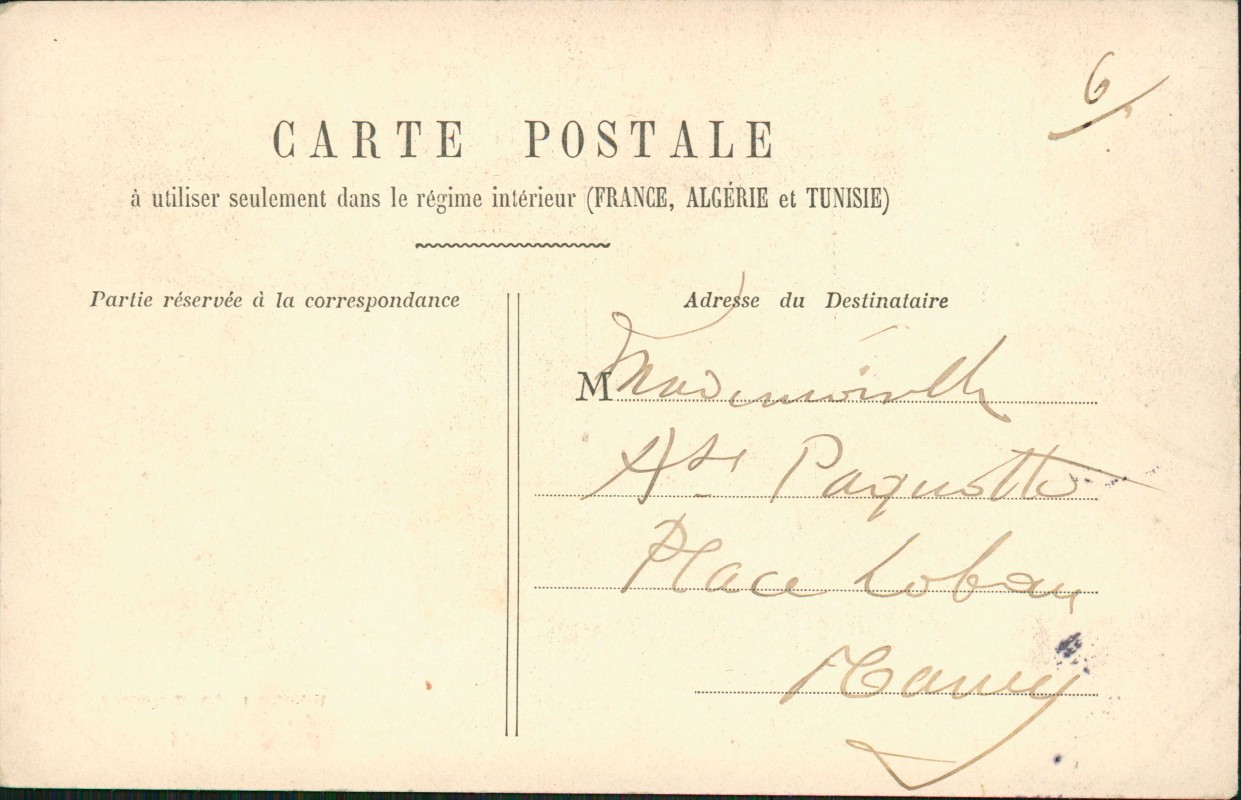 6
CARTE POSTALE
à utiliser seulement dans le régime intérieur (FRANCE, ALGÉRIE et TUNISIE)
Partie réservée à la correspondance
Adresse du Destinataire
M Mademoiselle
Paquotte
Place Lobau
Nancy